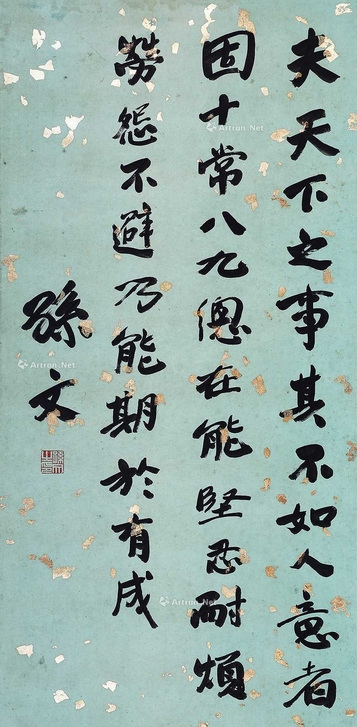 夫天下之事其不如人意者
固十常八九總在能堅忍耐煩
勞怨不避乃能期於有成
孫文
Artron.Net
Artron.Net
Artron.Net
Artron.Net
Artron.Net
Artron.Net